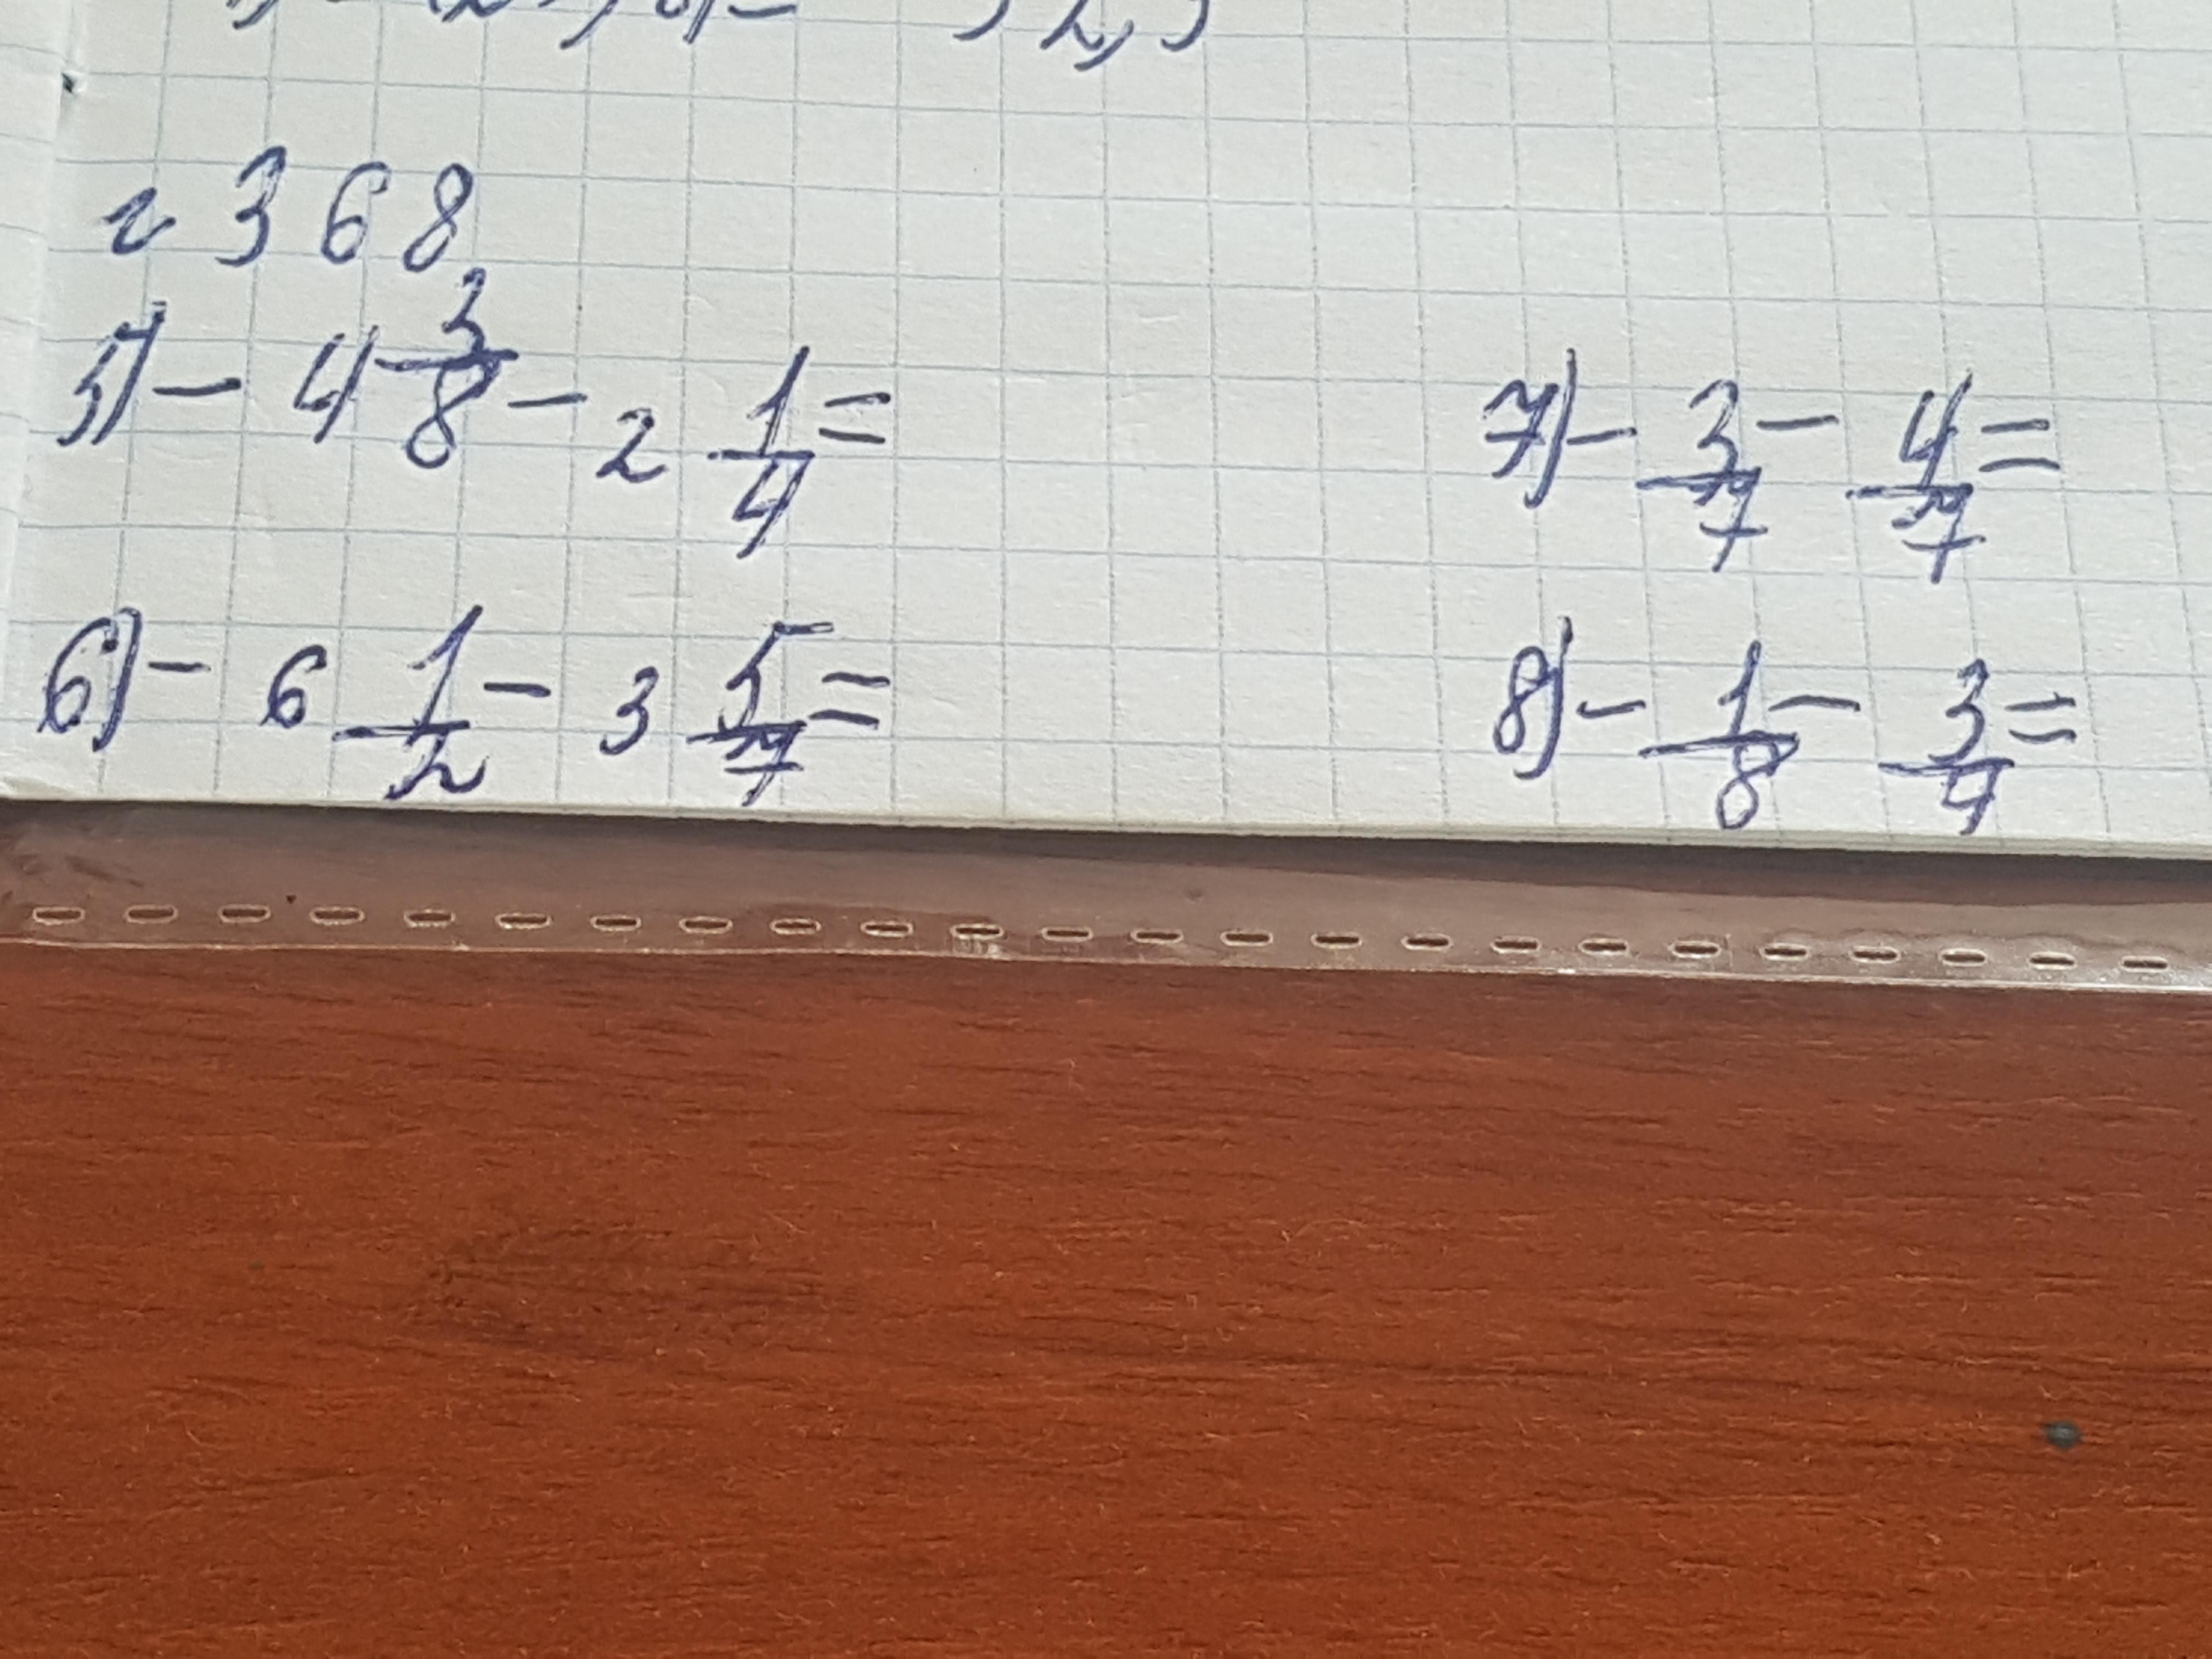 2368
5) - 4 3/8 - 2 1/4 =
7) - 3/7 - 4/7 =
6) - 6 1/2 - 3 5/7 =
8) - 1/8 - 3/4 =